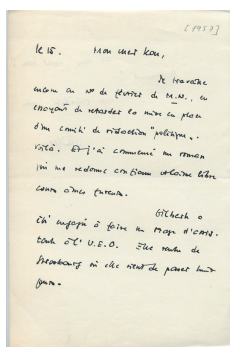 [1957]
le 15. Mon cher Kou,
Je travaille
encore au n° de février de M.N., en
essayant de retarder la mise en place
d'un comité de rédaction "politique".
Voilà. Et j'ai commencé un roman
qui me redonne confiance et laisse libre
cours à mes fureurs.
Gilbert a
été engagé à faire un d'assis-
tante à l'U.E.O. Elle rentre de
Strasbourg où elle vient de passer huit
jours.